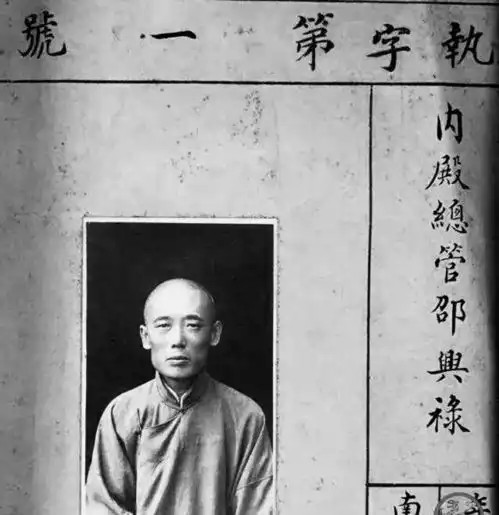 執字第一號
內殿總管邵興祿
年
南